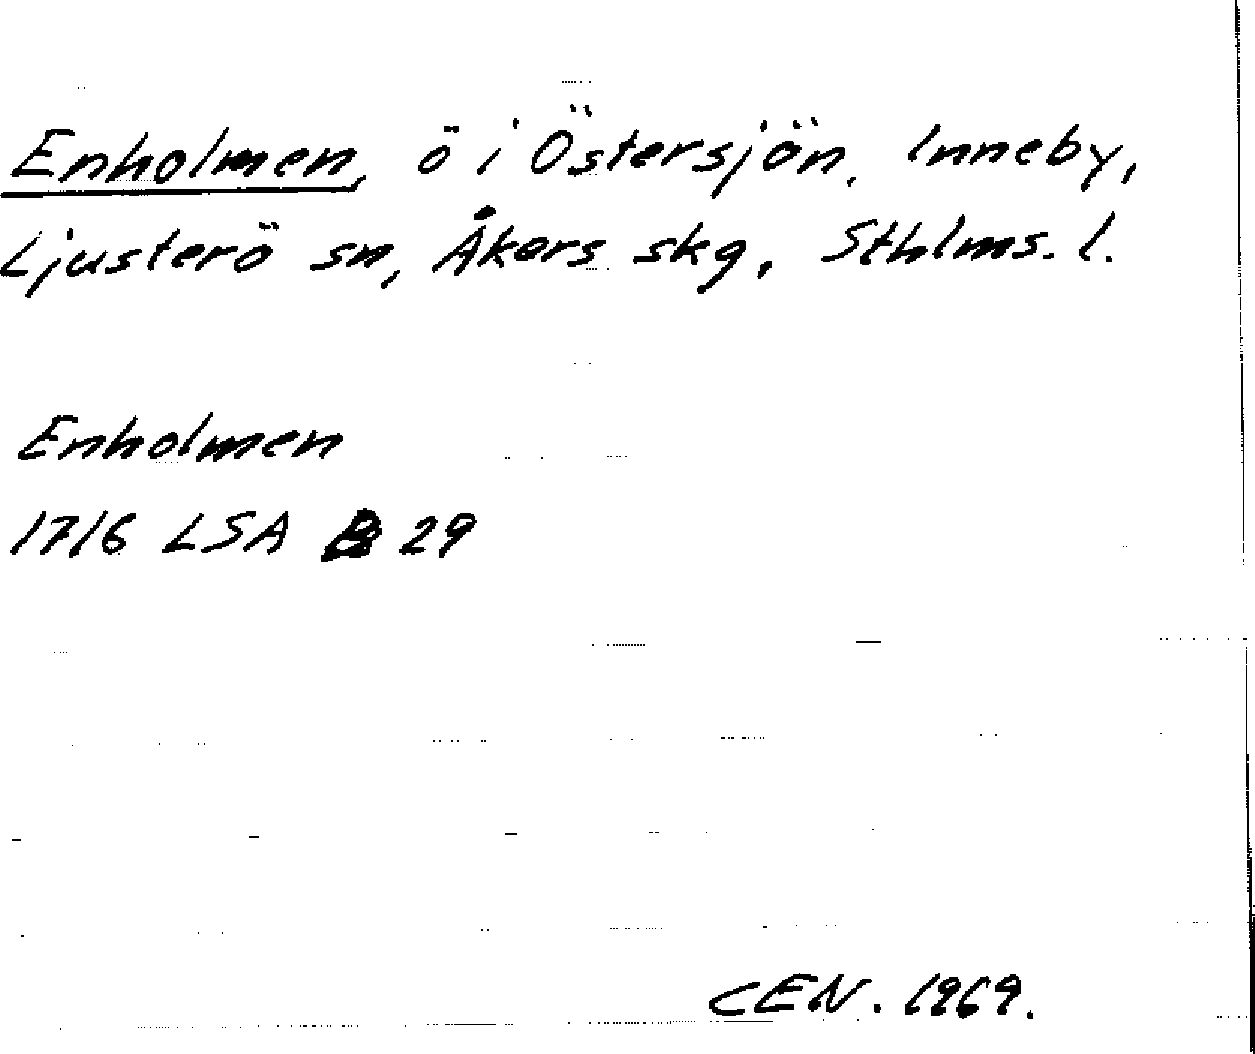 Enholmen, ö i Östersjön, Inneby,
Ljusterö sn, Åkers skg, Sthlms. l.
Enholmen
1716 LSA B 29
CEN. 1969.